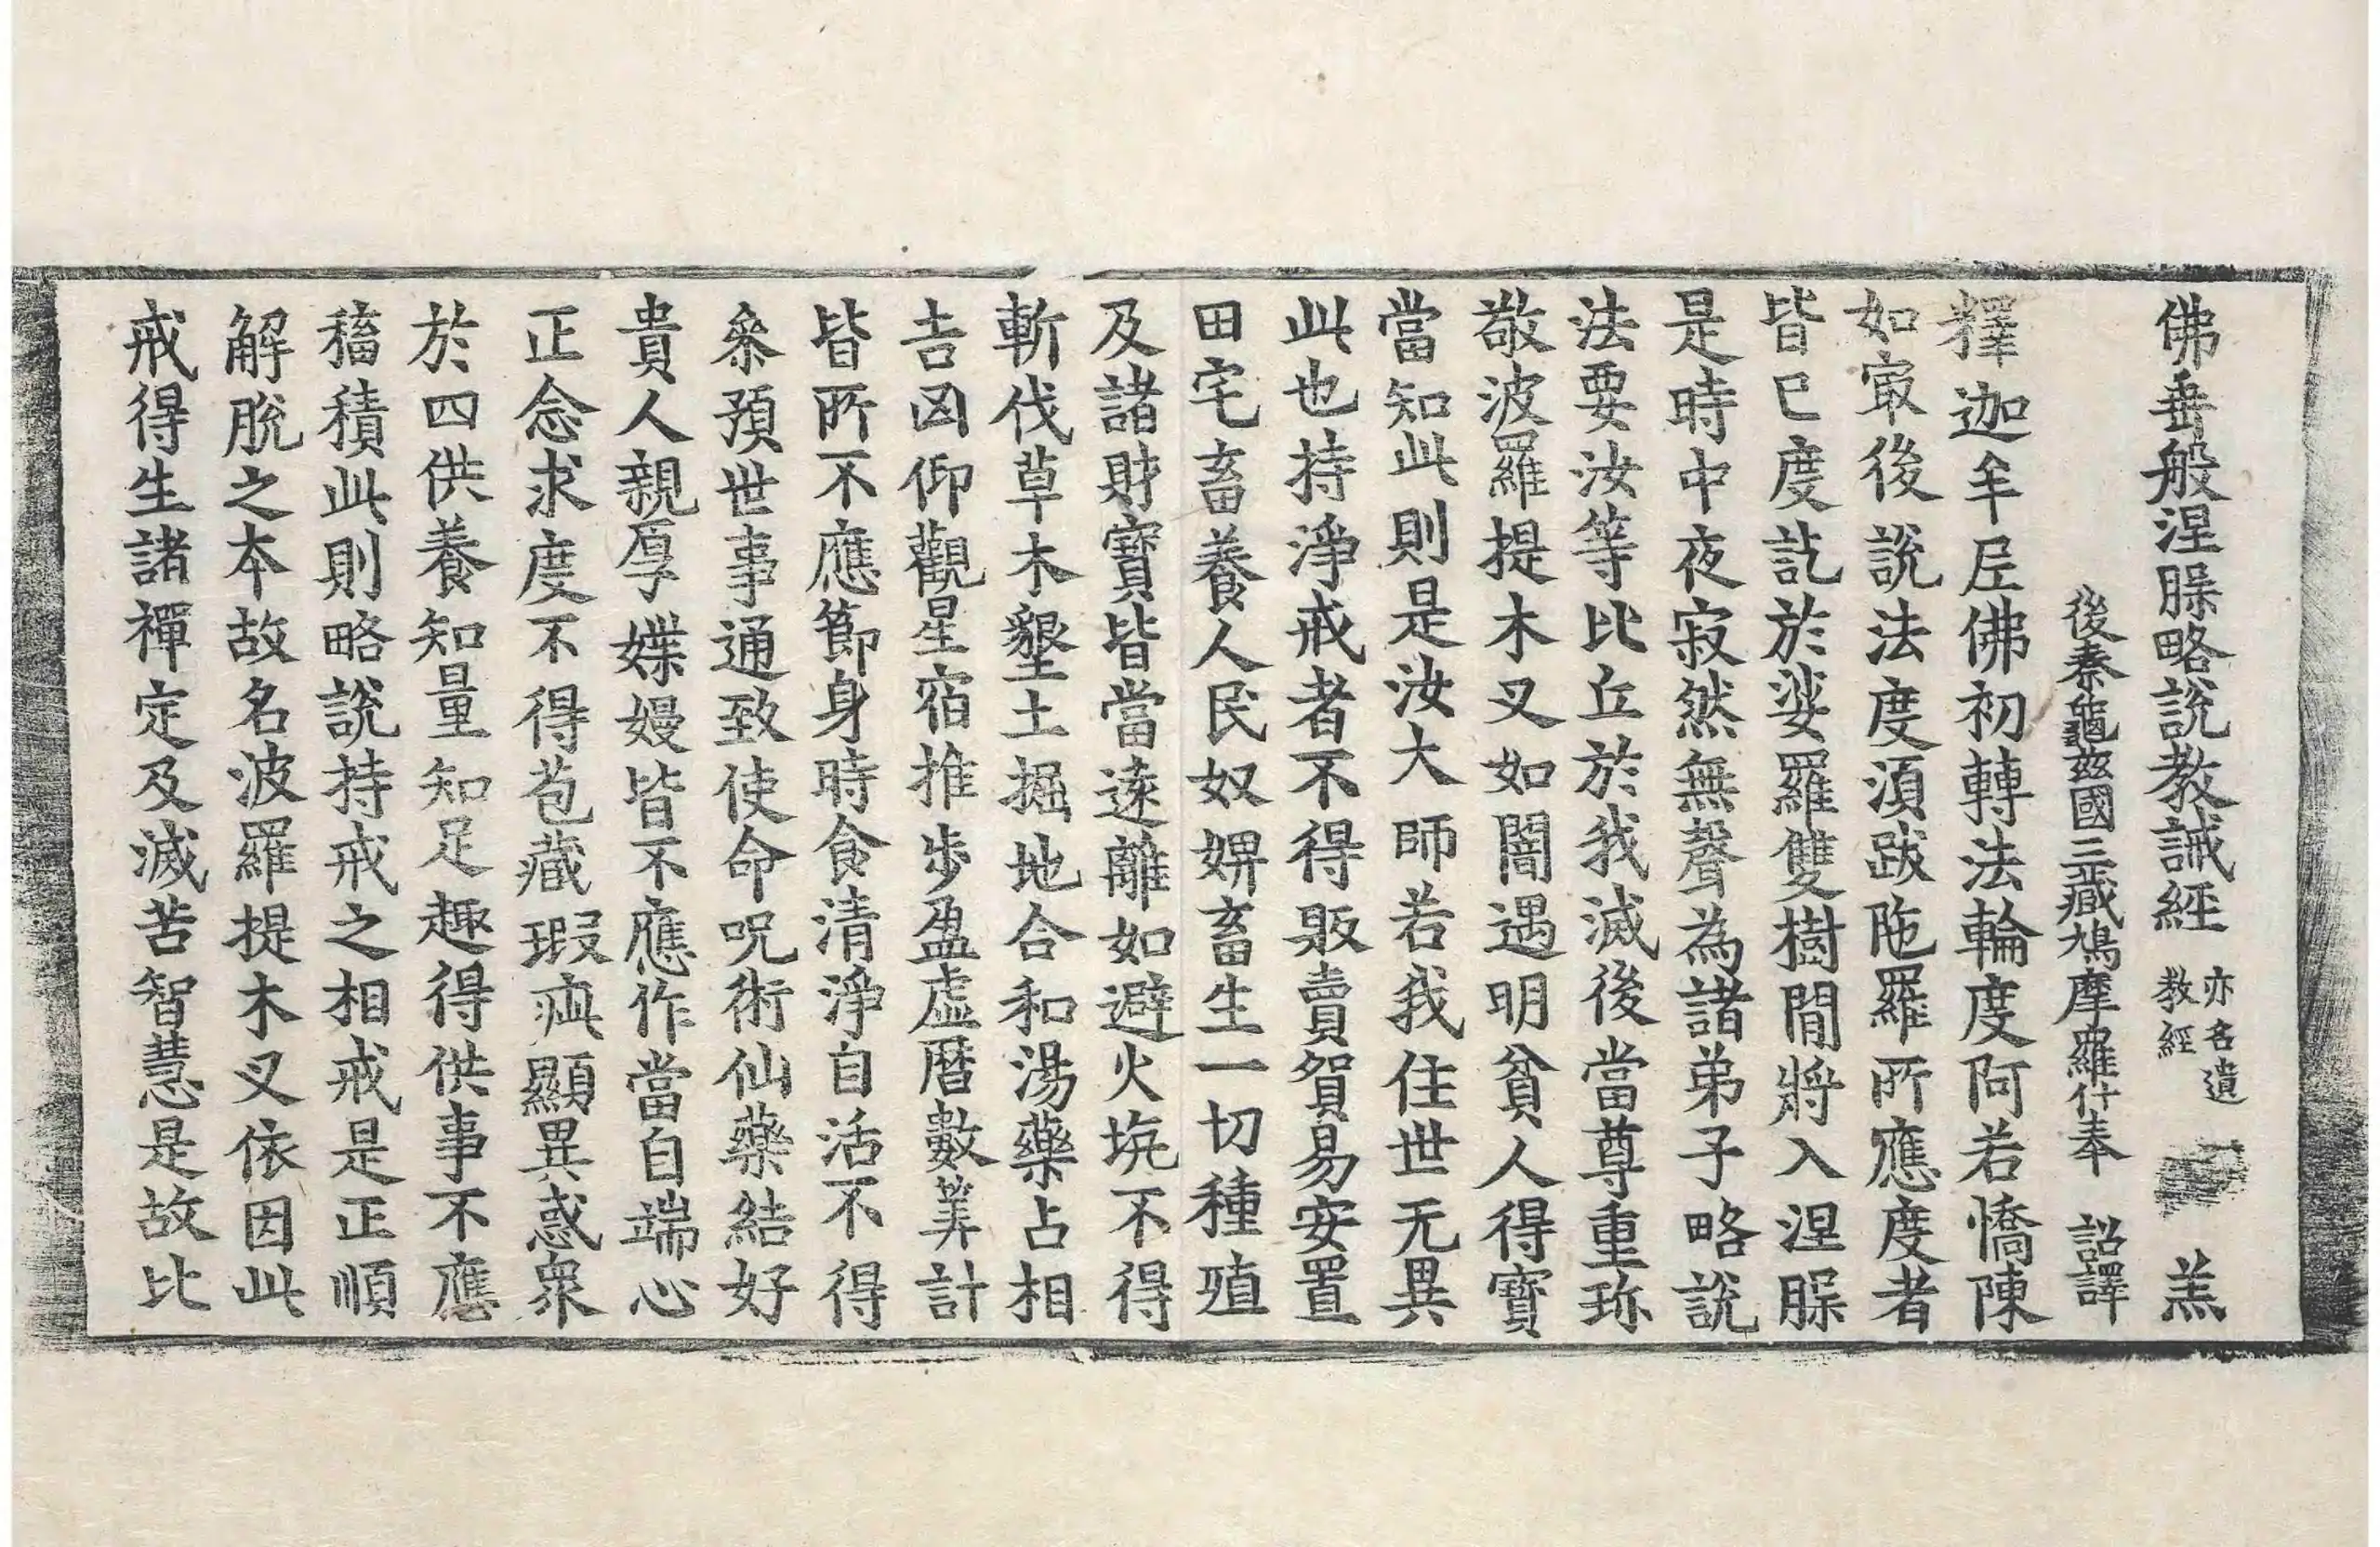 佛垂般涅𦠆略說教誡經 亦名遺教經 羔
後秦龜茲國三藏鳩摩羅什奉 詔譯
釋迦牟𡰱佛初轉法輪度阿若憍陳
如㝡後說法度湏跋陁羅所應度者
皆已度訖於娑羅雙樹閒將入涅𦠆
是時中夜寂然無聲為諸弟子略說
法要汝等比丘於我滅後當尊重珎
敬波羅提木叉如闇遇明貧人得寶
當知此則是汝大師若我住世无異
此也持淨戒者不得販賣貿易安置
田宅畜養人民奴婢畜生一切種殖
及諸財寶皆當遠離如避火坑不得
斬伐草木墾土掘地合和湯藥占相
吉凶仰觀星宿推步盈虛曆數筭計
皆所不應節身時食清淨自活不得
叅預世事通致使命呪術仙藥結好
貴人親厚媟嫚皆不應作當自端心
正念求度不得苞藏瑕疵顯異惑衆
於四供養知量知足趣得供事不應
稸積此則略說持戒之相戒是正順
解脫之本故名波羅提木叉依因此
戒得生諸禪定及滅苦智慧是故比